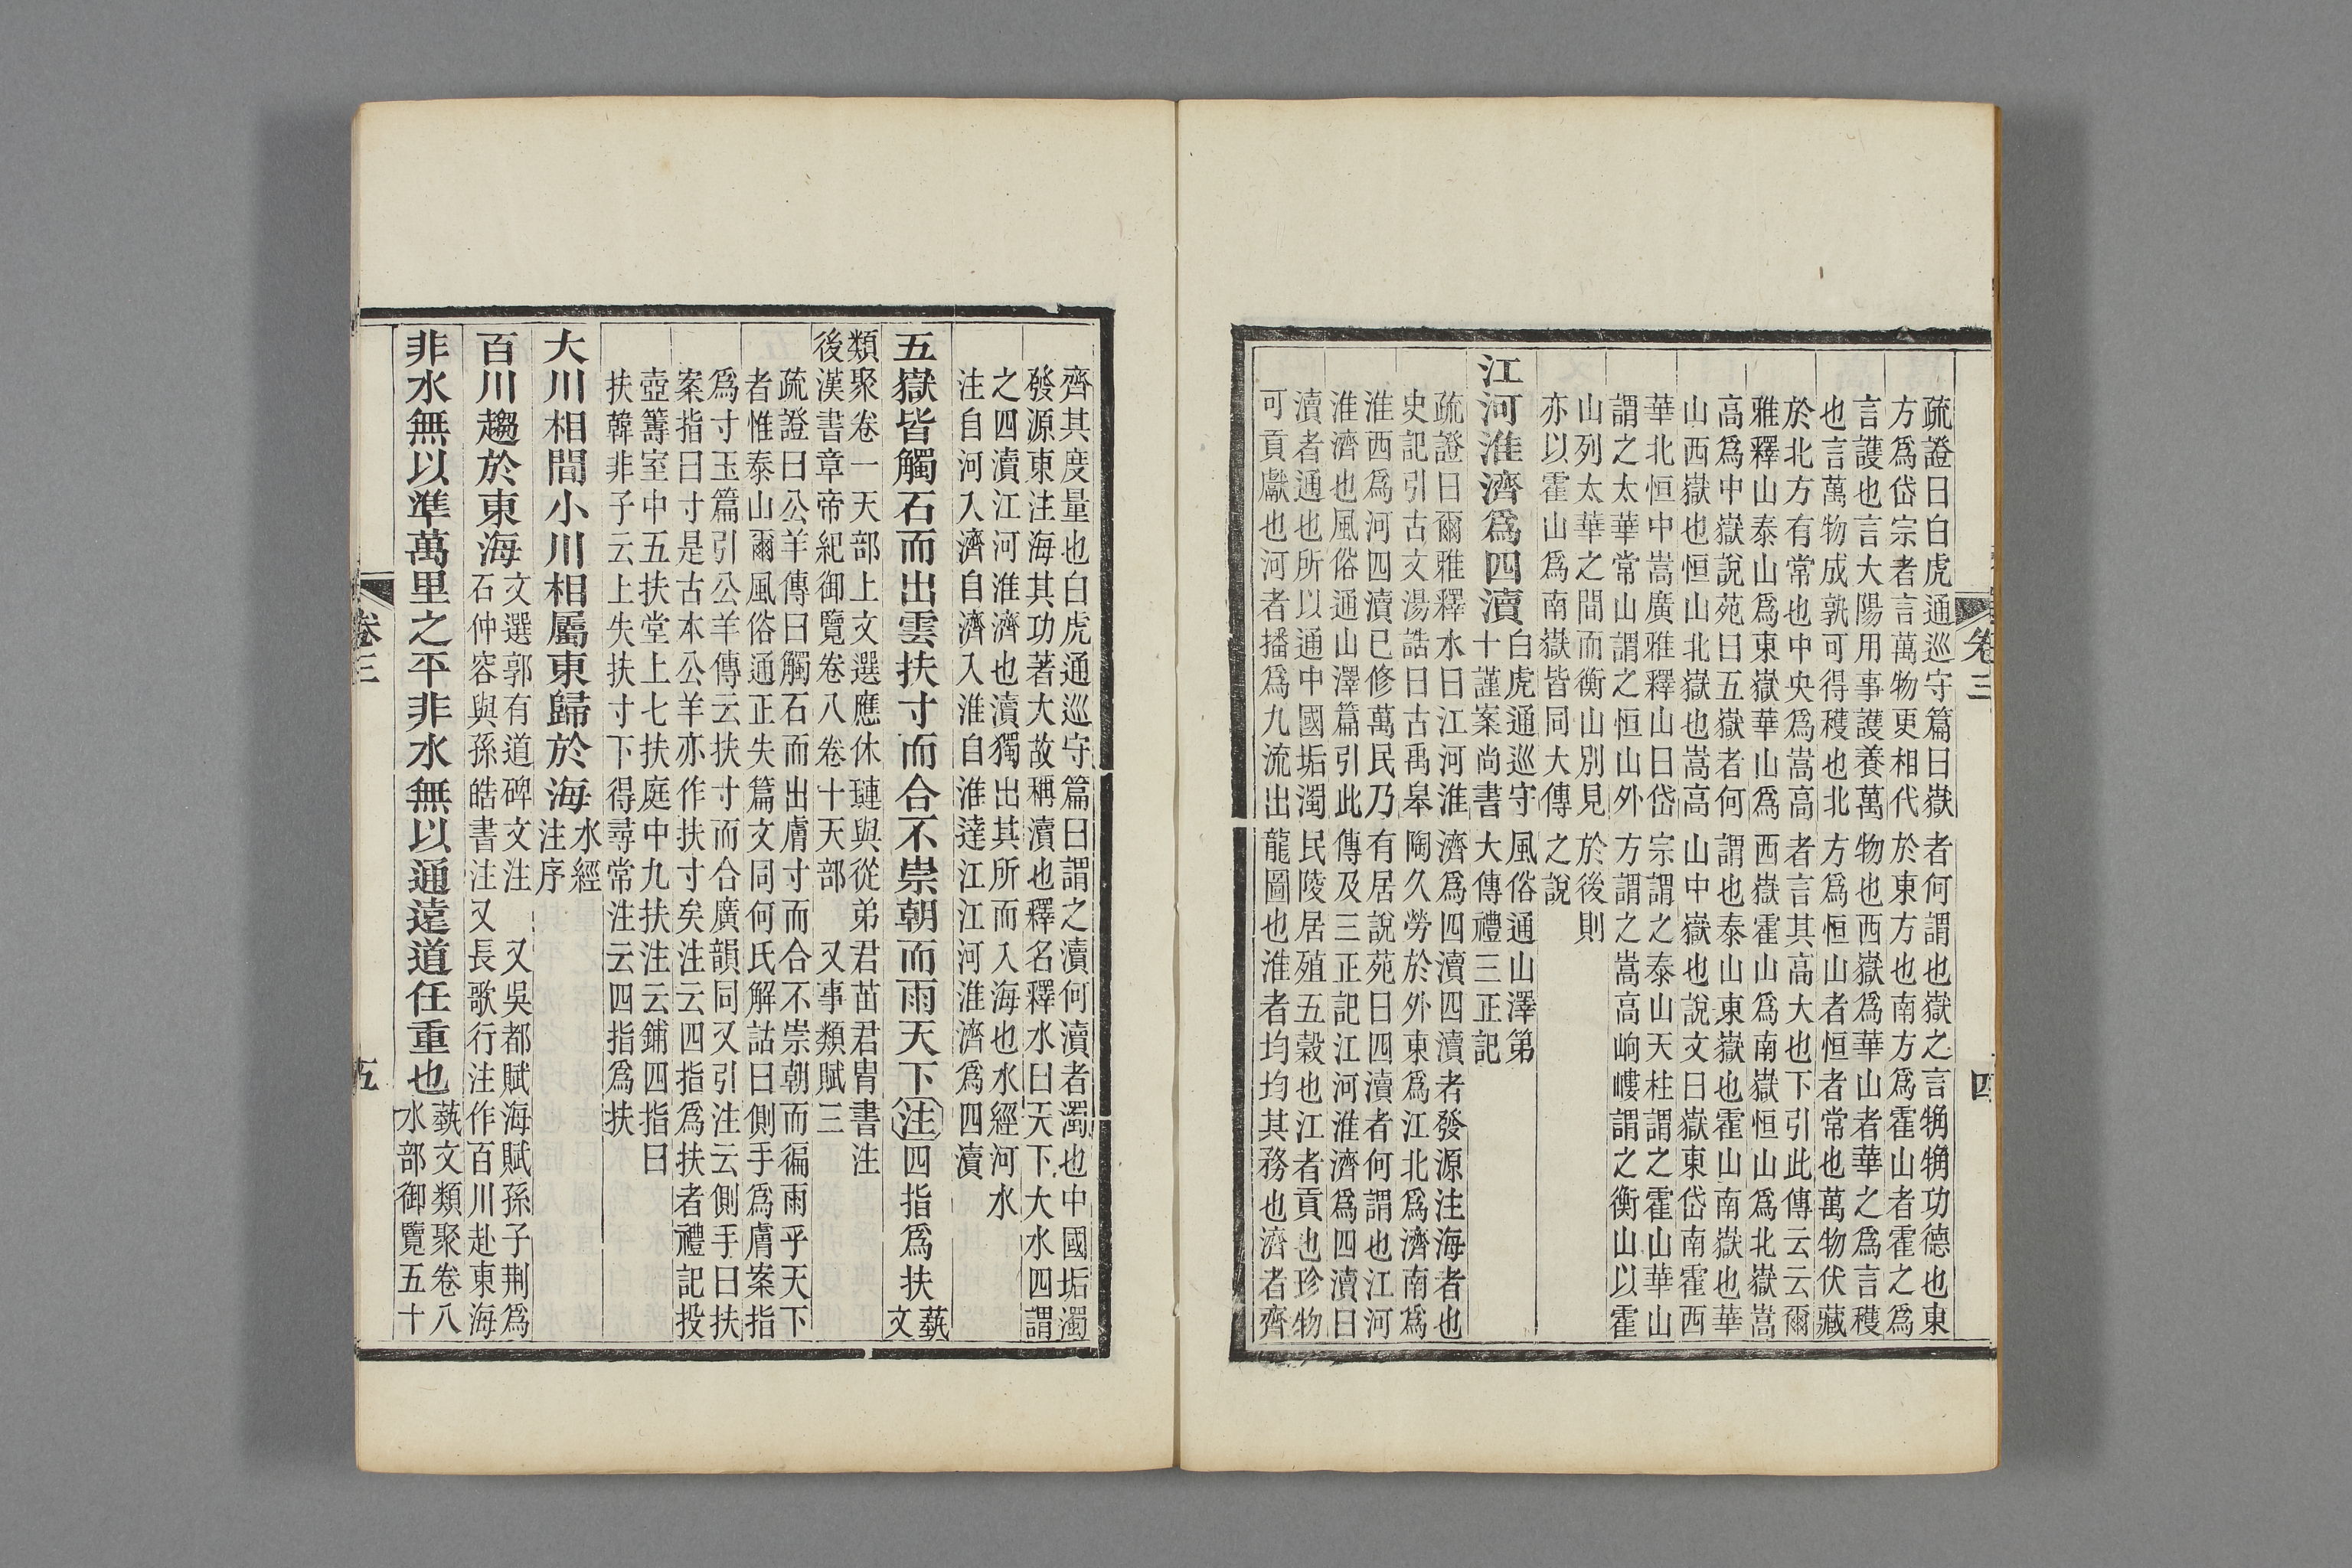 疏證曰白虎通巡守篇曰嶽者何謂也嶽之言捔捔功德也東
方爲岱宗者言萬物更相代於東方也南方爲霍山者霍之爲
言護也言大陽用事護養萬物也西嶽爲華山者華之爲言穫
也言萬物成孰可得穫也北方爲恒山者恒者常也萬物伏藏
於北方有常也中央爲嵩高者言其高大也下引此傳云云爾
雅釋山泰山爲東嶽華山爲西嶽霍山爲南嶽恒山爲北嶽嵩
高爲中嶽說苑曰五嶽者何謂也泰山東嶽也霍山南嶽也華
山西嶽也恒山北嶽也嵩高山中嶽也說文曰嶽東岱南霍西
華北恒中嵩廣雅釋山曰岱宗謂之泰山天柱謂之霍山華山
謂之太華常山謂之恒山外方謂之嵩高岣嶁謂之衡山以霍
山列太華之間而衡山別見於後則
亦以霍山爲南嶽皆同大傳之說
江河淮濟爲四瀆
白虎通巡守 風俗通山澤第
十謹案尚書大傳禮三正記
疏證曰爾雅釋水曰江河淮濟爲四瀆四瀆者發源注海者也
史記引古文湯誥曰古禹皋陶久勞於外東爲江北爲濟南爲
淮西爲河四瀆已修萬民乃有居說苑曰四瀆者何謂也江河
淮濟也風俗通山澤篇引此傳及三正記江河淮濟爲四瀆曰
瀆者通也所以通中國垢濁民陵居殖五穀也江者貢也珍物
可貢獻也河者播爲九流出龍圖也淮者均均其務也濟者齊
卷三
四
齊其度量也白虎通巡守篇曰謂之瀆何瀆者濁也中國垢濁
發源東注海其功著大故稱瀆也釋名釋水曰天下大水四謂
之四瀆江河淮濟也瀆獨出其所而入海也水經河水
注自河入濟自濟入淮自淮達江江河淮濟爲四瀆
五嶽皆觸石而出雲扶寸而合不崇朝而雨天下注四指爲扶
藝
文
類聚卷一天部上文選應休璉與從弟君苗君冑書注
後漢書章帝紀御覽卷八卷十天部 又事類賦三
疏證曰公羊傳曰觸石而出膚寸而合不崇朝而徧雨乎天下
者惟泰山爾風俗通正失篇文同何氏解詁曰側手爲膚案指
爲寸玉篇引公羊傳云扶寸而合廣韻同又引注云側手曰扶
案指曰寸是古本公羊亦作扶寸矣注云四指爲扶者禮記投
壺籌室中五扶堂上七扶庭中九扶注云鋪四指曰
扶韓非子云上失扶寸下得尋常注云四指爲扶
大川相間小川相屬東歸於海
水經
注序
百川趨於東海
文選郭有道碑文注 又吳都賦海賦孫子荆爲
石仲容與孫皓書注又長歌行注作百川赴東海
非水無以準萬里之平非水無以通遠道任重也
藝文類聚卷八
水部御覽五十
卷三
五